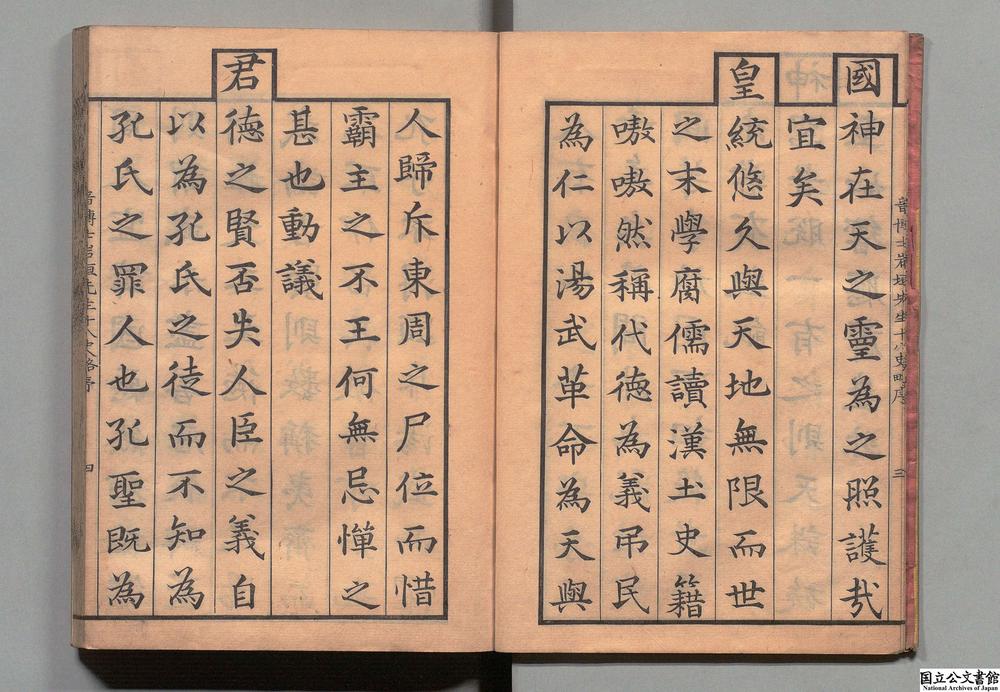 國神在天之靈為之照護哉
宜矣
皇統悠久與天地無限而世
之末學腐儒讀漢土史籍
嗷嗷然稱代德為義弔民
為仁以湯武革命為天與
人歸斥東周之尸位而惜
霸主之不王何無忌憚之
甚也動議
君德之賢否失人臣之義自
以為孔氏之徒而不知為
孔氏之罪人也孔聖既為
音博士岩垣先生十八史略序
三
音博士岩垣先生十八史略序
四
国立公文書館
National Archives of Japan